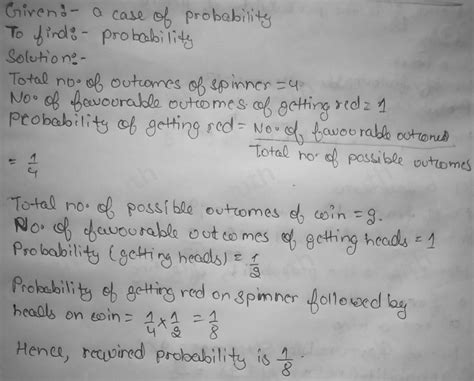 Given:- a case of probability
To find:- probability
Solution:-
Total no. of outcomes of spinner = 4
No. of favourable outcomes of getting red = 1
Probability of getting red = No. of favourable outcomes
Total no of possible outcomes
= 1/4
Total no. of possible outcomes of coin = 2.
No. of favourable outcomes of getting heads = 1
Probability (getting heads) = 1/2
Probability of getting red on spinner followed by
heads on coin = 1/4 × 1/2 = 1/8
Hence, required probability is 1/8.